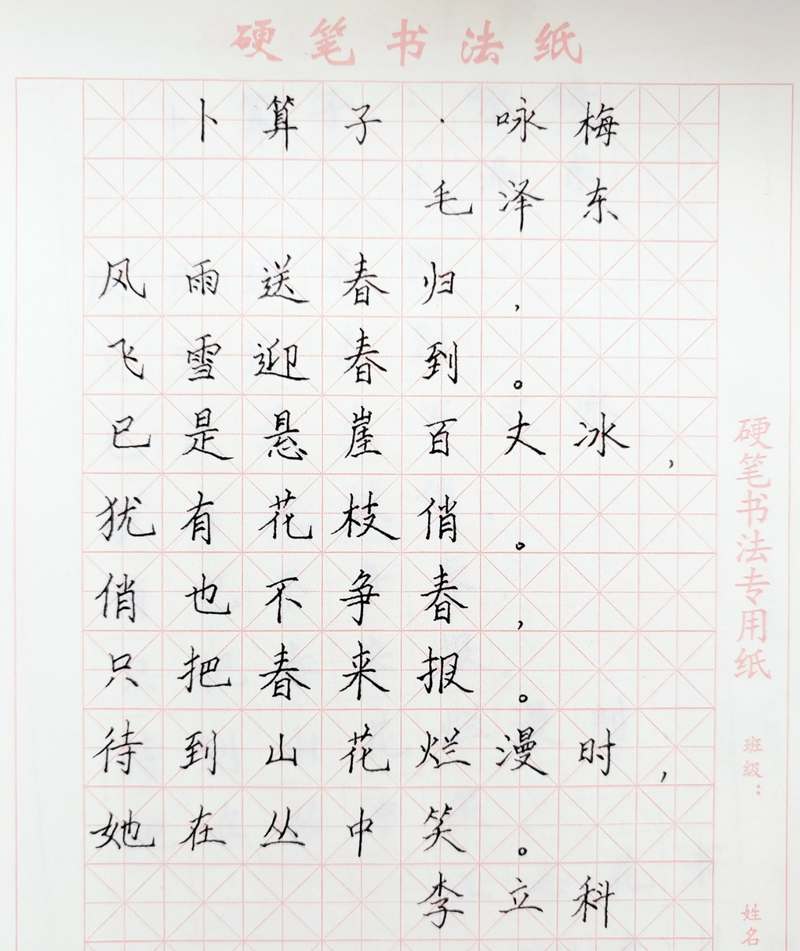 硬笔书法纸
卜算子·咏梅
毛泽东
风雨送春归，
飞雪迎春到。
已是悬崖百丈冰，
犹有花枝俏。
俏也不争春，
只把春来报。
待到山花烂漫时，
她在丛中笑。
李立科
硬笔书法专用纸
班级：
姓名